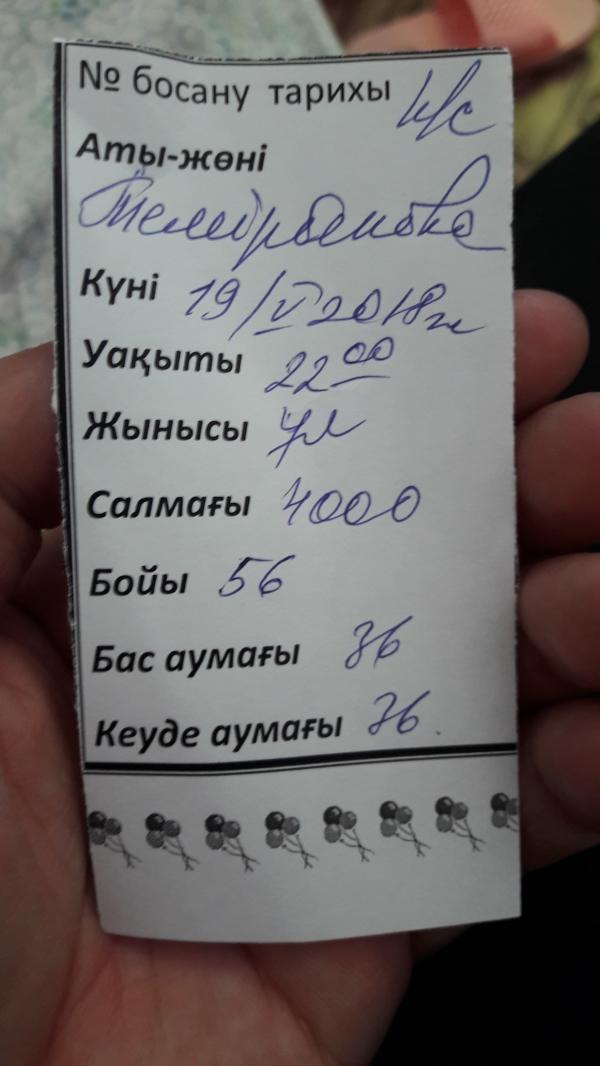 № босану тарихы н/с
Аты-жөні
Темирбекова
Күні 19/V 2018ж
Уақыты 22 00
Жынысы ұл
Салмағы 4000
Бойы 56
Бас аумағы 36
Кеуде аумағы 36.